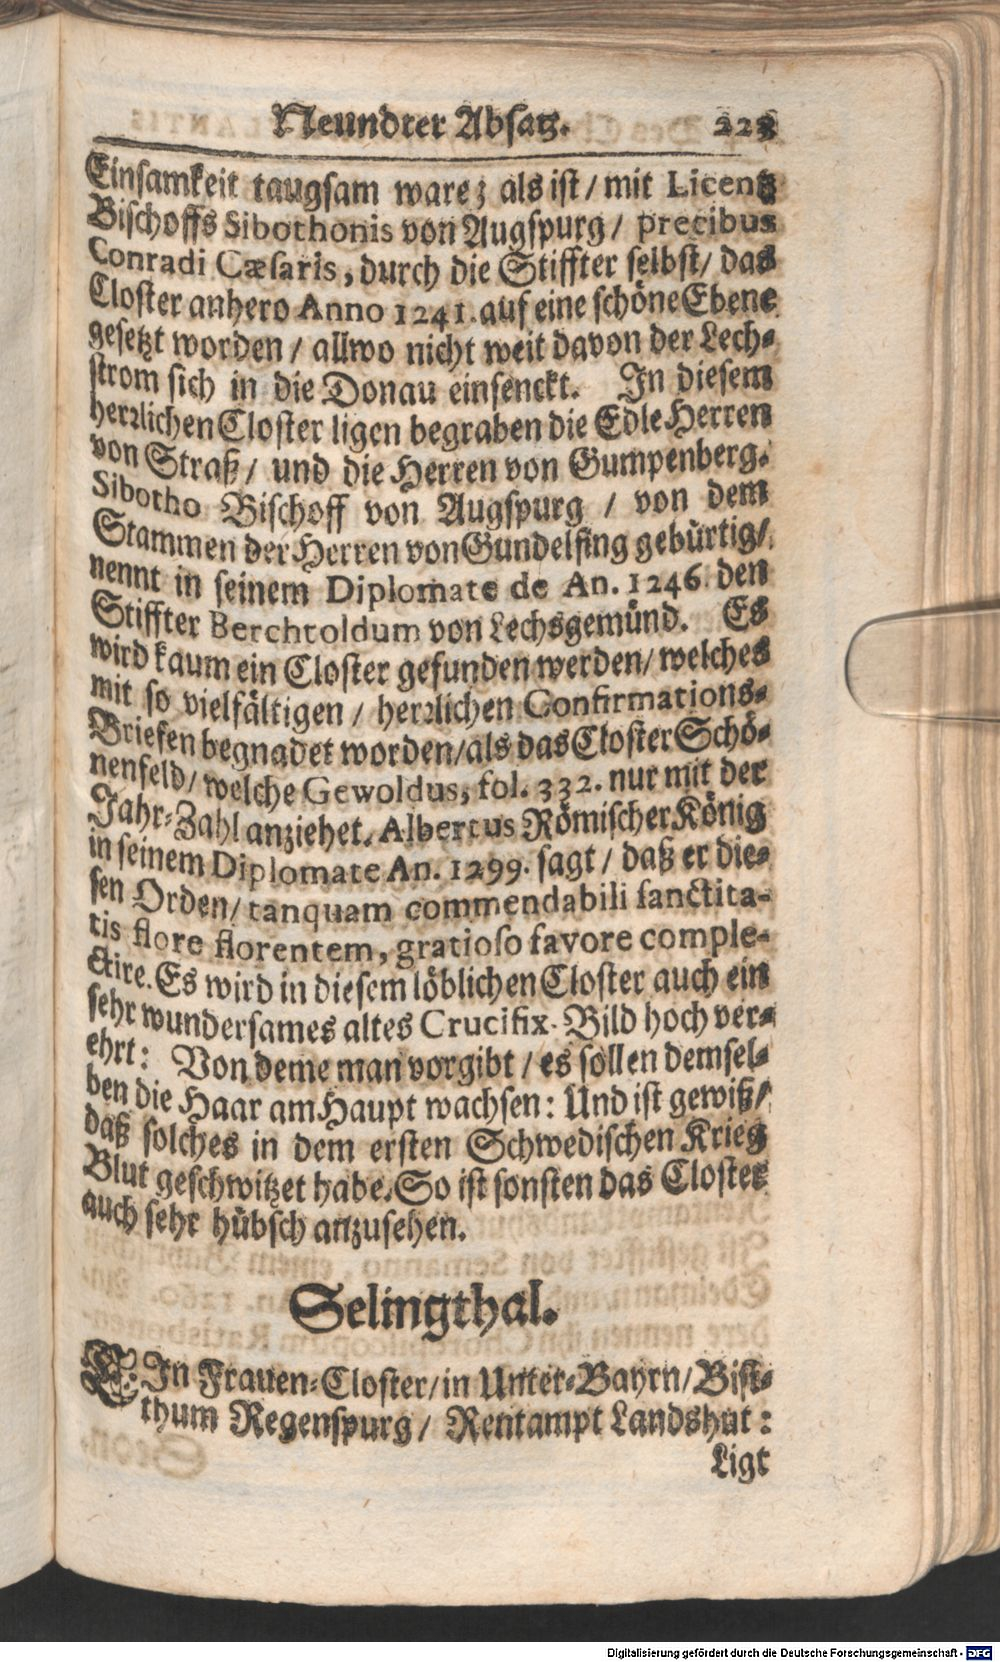 Neundter Absatz. 223
Einsamkeit taugsam ware; als ist / mit Licentz
Bischoffs Sibothonis von Augspurg / precibus
Conradi Cæsaris, durch die Stiffter selbst / das
Closter anhero Anno 1241. auf eine schöne Ebene
gesetzt worden / allwo nicht weit davon der Lech-
strom sich in die Donau einsenckt. In diesem
herꝛlichen Closter ligen begraben die Edle Herren
von Straß / und die Herren von Gumpenberg.
Sibotho Bischoff von Augspurg / von dem
Stammen der Herren von Gundelfing gebürtig /
nennt in seinem Diplomate de An. 1246. den
Stiffter Berchtoldum von Lechsgemünd. Es
wird kaum ein Closter gefunden werden / welches
mit so vielfältigen / herꝛlichen Confirmations-
Briefen begnadet worden / als das Closter Schö-
nenfeld / welche Gewoldus, fol. 332. nur mit der
Jahr-Zahl anziehet. Albertus Römischer König
in seinem Diplomate An. 1299. sagt / daß er die-
sen Orden / tanquam commendabili sanctita-
tis flore florentem, gratioso favore comple-
ctire. Es wird in diesem löblichen Closter auch ein
sehr wundersames altes Crucifix-Bild hoch ver-
ehrt: Von deme man vorgibt / es sollen demsel-
ben die Haar am Haupt wachsen: Und ist gewiß /
daß solches in dem ersten Schwedischen Krieg
Blut geschwitzet habe. So ist sonsten das Closter
auch sehr hübsch anzusehen.
Selingthal.
EIn Frauen-Closter / in Unter-Bayrn / Bist-
thum Regenspurg / Rentampt Landshut:
Ligt
Digitalisierung gefördert durch die Deutsche Forschungsgemeinschaft - DFG